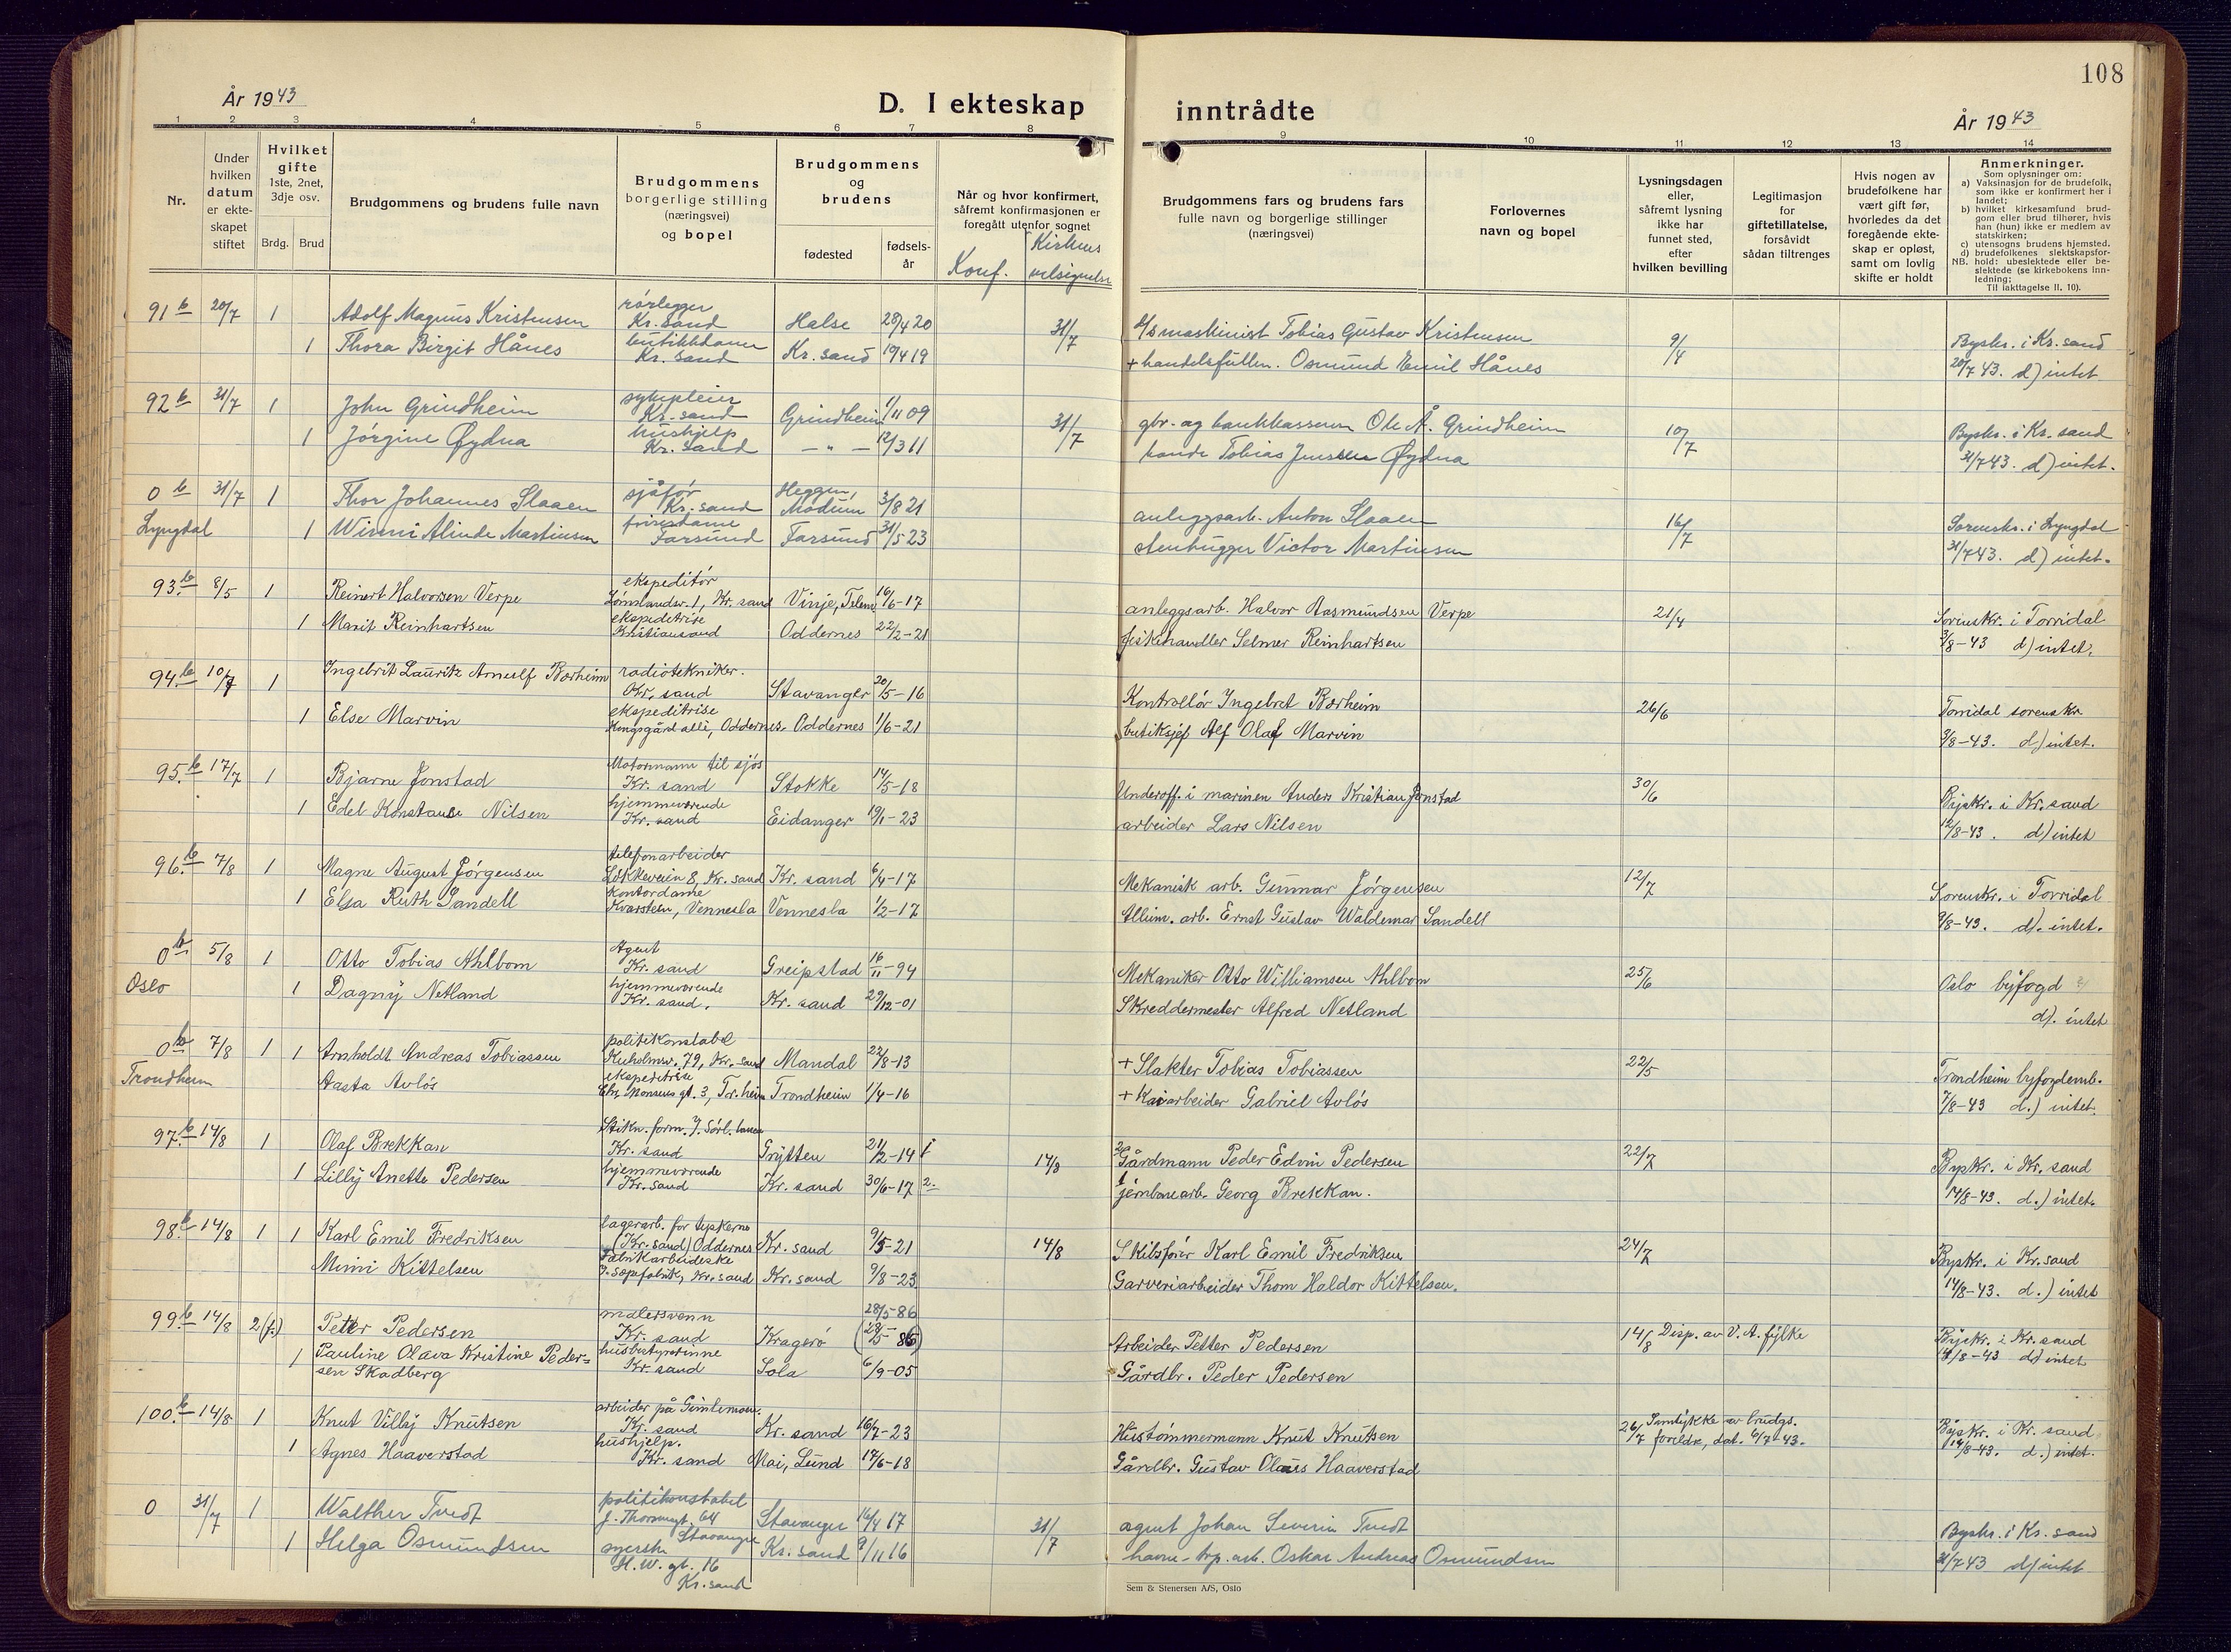 108
År 1943
D. I ekteskap inntrådte
År 1943
1 2 3 4 5 6 7 8 9 10 11 12 13 14
Nr.
Under hvilken datum er ekteskapet stiftet
Hvilket gifte 1ste, 2net, 3dje osv.
Brdg. Brud
Brudgommens og brudens fulle navn
Brudgommens borgerlige stilling (næringsvei) og bopel
Brudgommens og brudens
fødested
fødsels-år
Når og hvor konfirmert, såfremt konfirmasjonen er foregått utenfor sognet
Konf.
Kirkens velsignelse
Brudgommens fars og brudens fars fulle navn og borgerlige stillinger (næringsvei)
Forlovernes navn og bopel
Lysningsdagen eller, såfremt lysning ikke har funnet sted, efter hvilken bevilling
Legitimasjon for giftetillatelse, forsåvidt sådan tiltrenges
Hvis nogen av brudefolkene har vært gift før, hvorledes da det foregående ekteskap er opløst, samt om lovlig skifte er holdt
Anmerkninger.
Som oplysninger om:
a) Vaksinasjon for de brudefolk, som ikke er konfirmert her i landet;
b) hvilket kirkesamfund brudgom eller brud tilhører, hvis han (hun) ikke er medlem av statskirken;
c) utensogns brudens hjemsted.
d) brudefolkenes slektskapsforhold: ubeslektede eller beslektede (se kirkebokens Innledning;
NB. Til iakttagelse II. 10).
91 b 20/7 1 Adolf Magnus Kristensen rørlegger Kr. sand Halse 28/4 20 31/7 maskinist Tobias Gustav Kristensen 9/4 Byskr. i Kr. sand
1 Thora Birgit Hånes butikkdame Kr. sand Kr. sand 19/4 19 + handelsfullm. Osmund Emil Hånes 20/7 43. d) intet
92 b 31/7 1 John Grindheim sykepleier Kr. sand Grindheim 1/11 09 31/7 gbr. og bankkasserer Ole Å. Grindheim 10/7 Byskr. i Kr. sand
1 Jørgine Øydna hushjelp Kr. sand — " — 12/3 11 bonde Tobias Jenssen Øydna 31/7 43. d) intet.
0 b 31/7 1 Thor Johannes Slaaen sjåfør Kr. sand Heggen, Modum 3/8 21 anleggsarb. Anton Slaaen 16/7 Sorenskr. i Lyngdal
Lyngdal 1 Winni Alinde Martinsen frisørdame Farsund Farsund 31/5 23 stenhugger Victor Martinsen 31/7 43. d) intet.
93. b 8/5 1 Reinert Halvorsen Verpe ekspeditør Lømslandsv. 1, Kr. sand Vinje, Telem. 16/6-17 anleggsarb. Halvor Aasmundsen Verpe 21/4 Sorenskr. i Torridal
1 Marit Reinhartsen ekspeditrise Kristiansand Oddernes 22/2-21 fiskehandler Selmer Reinhartsen 3/8-43 d) intet.
94. b 10/7 1 Ingebrit Lauritz Arnulf Bærheim radiotekniker. Kr. sand Stavanger 20/5-16 Kontrollør Ingebret Bærheim 26/6 Torridal sorenskr.
1 Else Marvin ekspeditrise Kongsgård alle, Oddernes Oddernes 1/6-21 butiksjef Alf Olaf Marvin 3/8-43. d) intet.
95. b 17/7 1 Bjarne Jonstad Motormann til sjøs Kr. sand Stokke 14/5-18 Underoff. i marinen Anders Kristian Jonstad 30/6 Byskr. i Kr. sand
1 Edel Konstanse Nilsen hjemmeværende Kr. sand Eidanger 19/1-23 arbeider Lars Nilsen 12/8-43. d) intet
96. b 7/8 1 Magne August Jørgensen telefonarbeider Løkkeveien 8, Kr. sand Kr. sand 6/4-17 Mekanisk arb. Gunnar Jørgensen 12/7 Sorenskr. i Torridal
1 Elsa Ruth Sandell kontordame Kvarstein, Vennesla Vennesla 1/2-17 Allum. arb. Ernst Gustav Waldemar Sandell 9/8-43. d). intet.
0 b 5/8 1 Otto Tobias Ahlbom Agent Kr. sand Greipstad 16/11-94 Mekaniker Otto Williamsen Ahlbom 25/6 Oslo byfogd
Oslo 1 Dagny Netland hjemmeværende Kr. sand. Kr. sand 29/12-01 Skreddermester Alfred Netland d). intet
0 b 7/8 1 1 Arnholdt Andreas Tobiassen politikonstabel Kuholmsv. 79, Kr. sand Mandal 22/8-13 + Slakter Tobias Tobiassen 22/5 Trondheim byfogdemb.
Trondheim Aasta Avløs ekspeditrise Chr. Monsens gt. 3, Tr. heim Trondheim 1/4-16 + Kaiarbeider Gabriel Avløs 7/8-43 d.) intet.
97. b 14/8 1 Olaf Brekkan Stikn. form. J. Sørl. banen Kr. sand Grytten 21/2-14 1 14/8 2 Gårdmann Peder Edvin Pedersen 22/7 Byskr. i Kr. sand
1 Lilly Anette Pedersen hjemmeværende Kr. sand Kr. sand 30/6-17 2. 1 jernbanearb. Georg Brekkan. 14/8-43. d.) intet.
98. b 14/8 1 1 Karl Emil Fredriksen lagerarb. for tyskerne (Kr. sand) Oddernes Kr. sand 9/5-21 14/8 Skibsfører Karl Emil Fredriksen 24/7 Byskr. i Kr. sand
Mimi Kittelsen Fabrikarbeiderske J. Sepfabrik, Kr. sand Kr. sand 9/8-23 Garveriarbeider Thom Haldor Kittelsen. 14/8-43. d.) intet
99. b 14/8 2(f.) Petter Pedersen malersvenn Kr. sand Kragerø 28/5-86 (28/5 86) Arbeider Petter Pedersen 14/8 Disp. av V. A. fylke Byskr. i Kr. sand
1 Pauline Olava Kristine Pedersen Skadberg husbestyrerinne Kr. sand Sola 6/9-05 Gårdbr. Peder Pedersen 14/8-43 d) intet
100. b 14/8 1 Knut Villy Knutsen arbeider på Gimlemoen. Kr. sand Kr. sand 16/7-23 Hustømmermann Knut Knutsen 26/7 Samtykke av brudgs. foreldre, dat. 6/7-43. Byskr. i Kr. sand
1 Agnes Haaverstad hushjelp. Kr. sand Moi, Lund 17/6-18 Gårdbr. Gustav Olaus Haaverstad 14/8-43. d.) intet.
0 31/7 1 Walther Tvedt politikonstabel J. Thorsensgt. 64 Stavanger Stavanger 16/4 17 31/7 agent Johan Severin Tvedt Byskr. i Kr. sand
1 Helga Osmundsen syerske H. W. gt. 16 Kr. sand Kr. sand 9/11 16 havne-arb. Oskar Andreas Osmundsen 31/7 43 d) intet
Sem & Stenersen A/S, Oslo